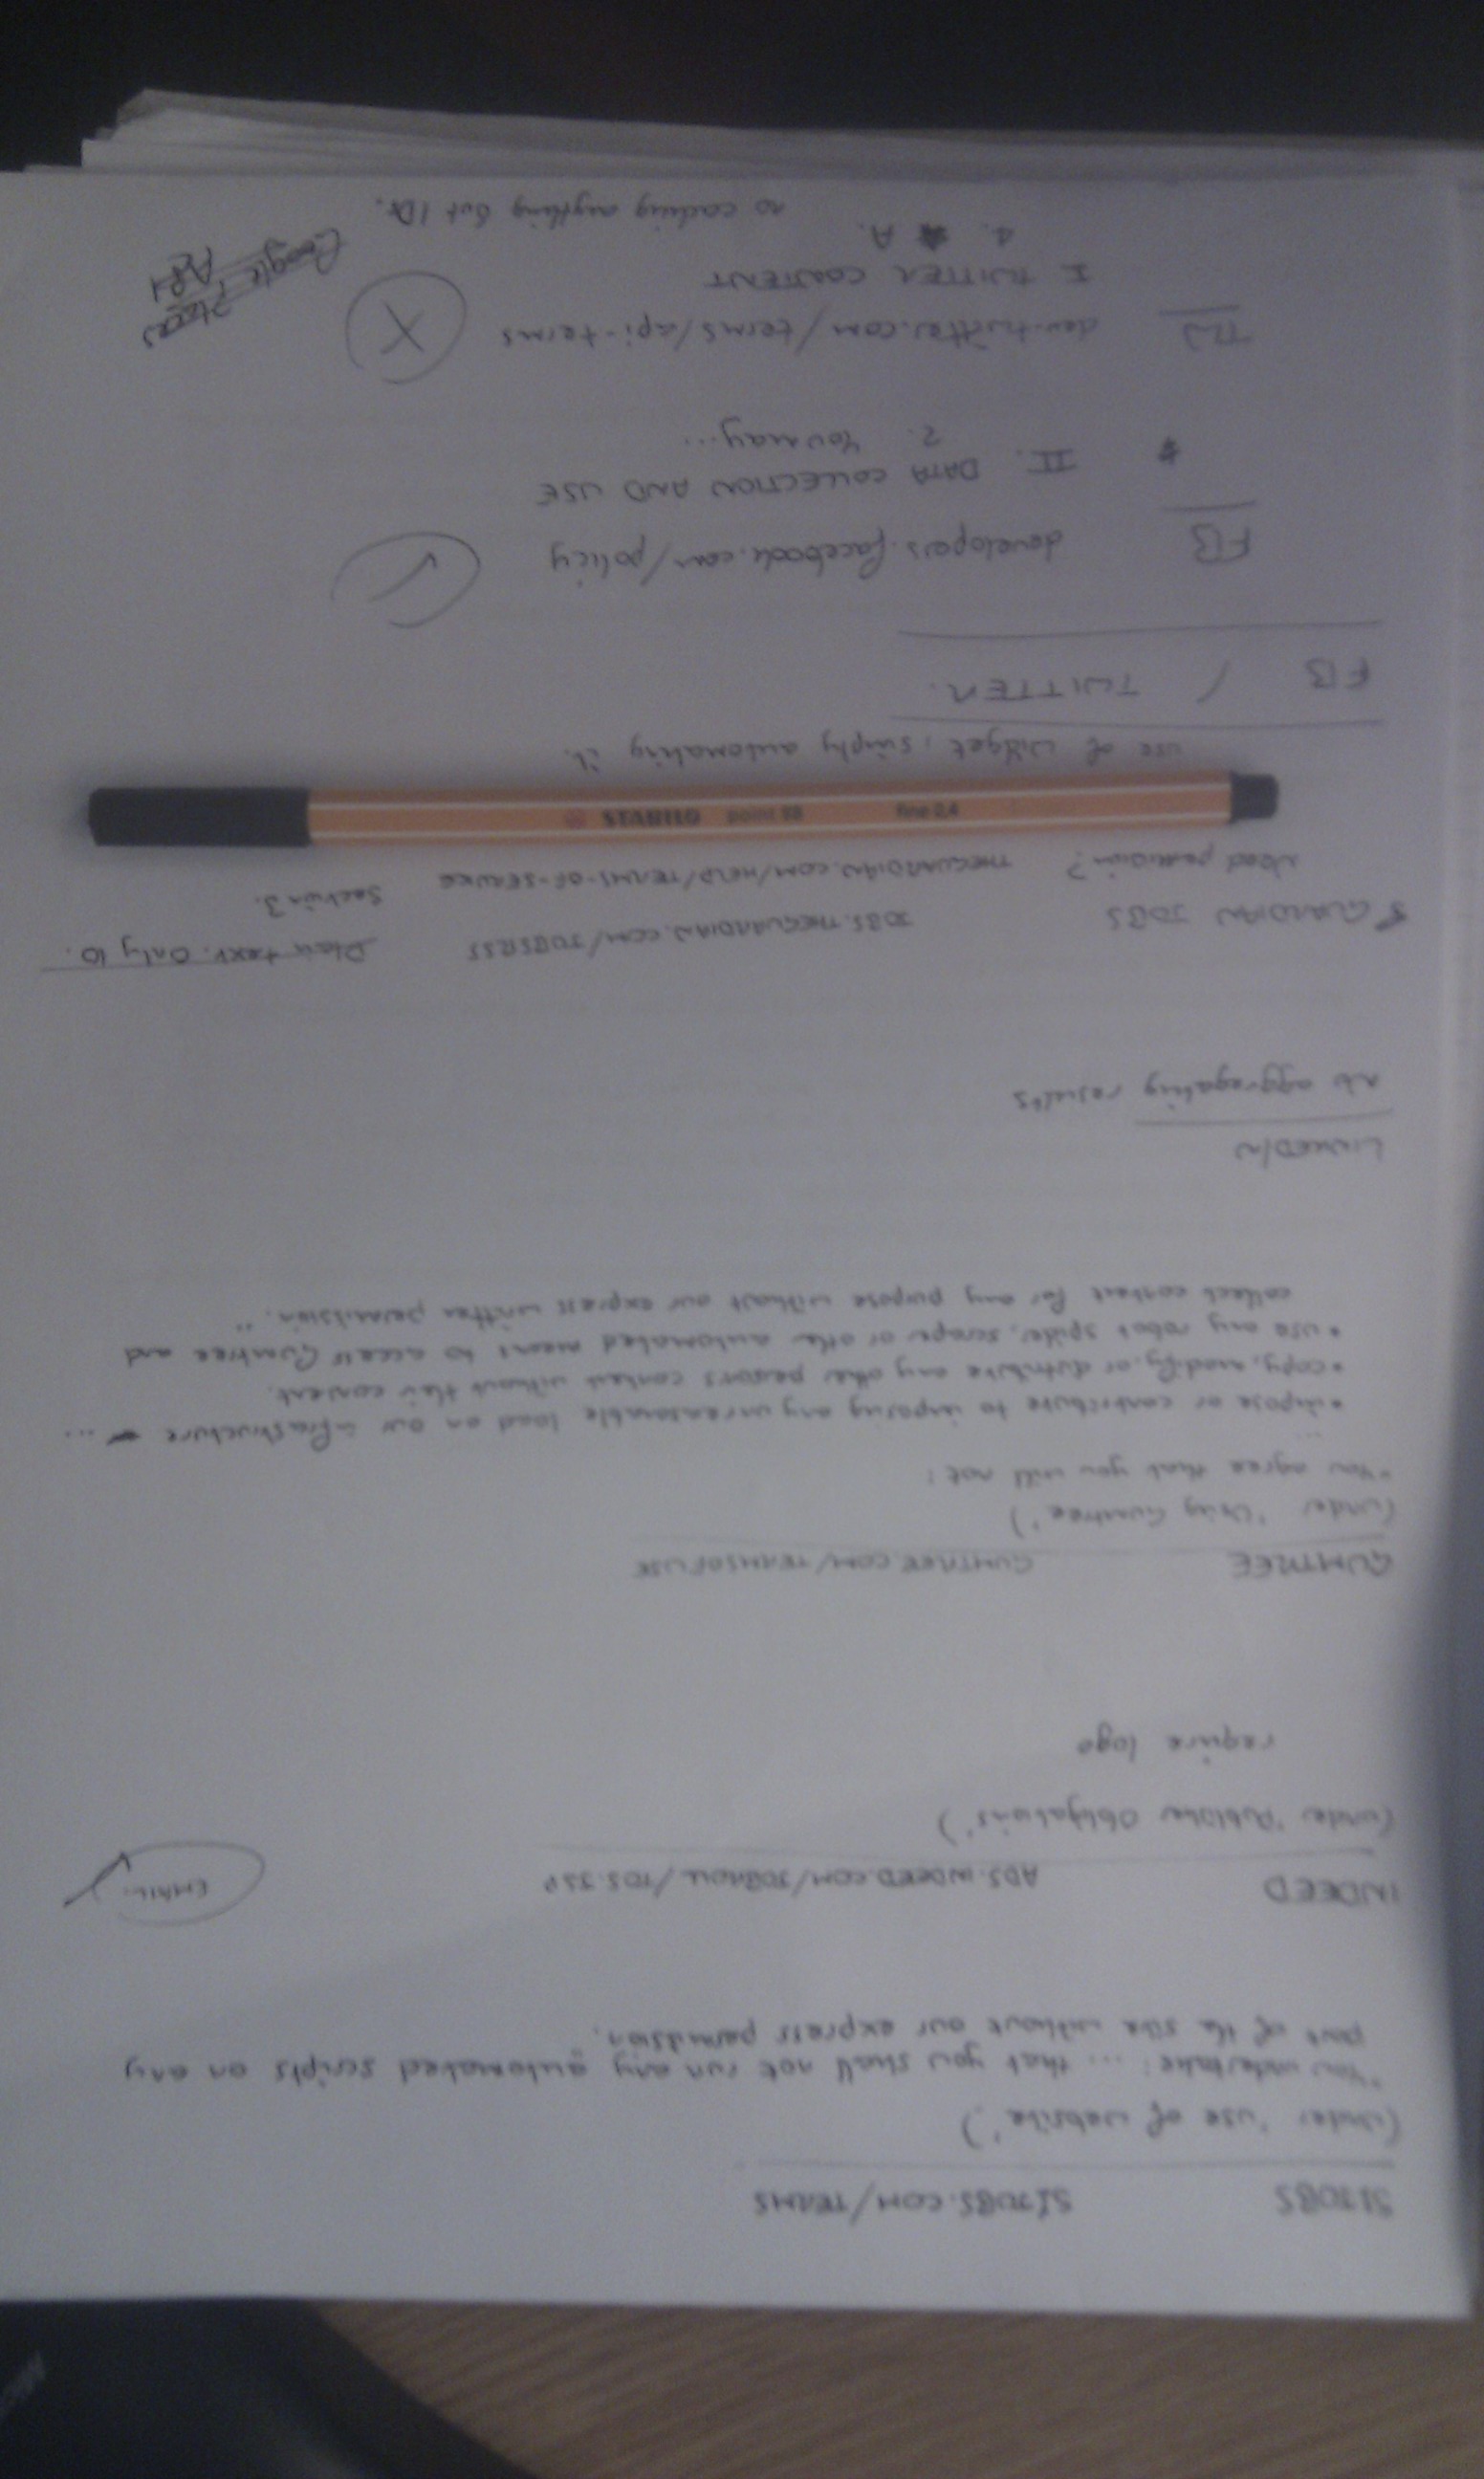 S1JOBS S1JOBS.COM/TERMS
(under 'use of website')
"You undertake: ... that you shall not run any automated scripts on any
part of the site without our express permission."
INDEED ADS.INDEED.COM/JOBROLL/TOS.JSP EMAIL
(under 'Publisher Obligations')
require logo
GUMTREE GUMTREE.COM/TERMSOFUSE
(under 'Using Gumtree')
"You agree that you will not:
...
• impose or contribute to imposing any unreasonable load on our infrastructure ...
• copy, modify, or distribute any other person's content without their consent.
• use any robot, spider, scraper or other automated means to access Gumtree and
collect content for any purpose without our express written permission."
LINKEDIN
no aggregating results
GUARDIAN JOBS JOBS.THEGUARDIAN.COM/JOBSRSS Plain text. Only 10.
Need permission? THEGUARDIAN.COM/HELP/TERMS-OF-SERVICE Section 3.
STABILO point 88 fine 0,4
use of widget, simply automating it.
FB / TWITTER.
FB developers.facebook.com/policy ✓
* II. DATA COLLECTION AND USE
2. You may...
TW dev.twitter.com/terms/api-terms X
I TWITTER CONTENT
4. A.
no caching anything but IDs.
Google Places API